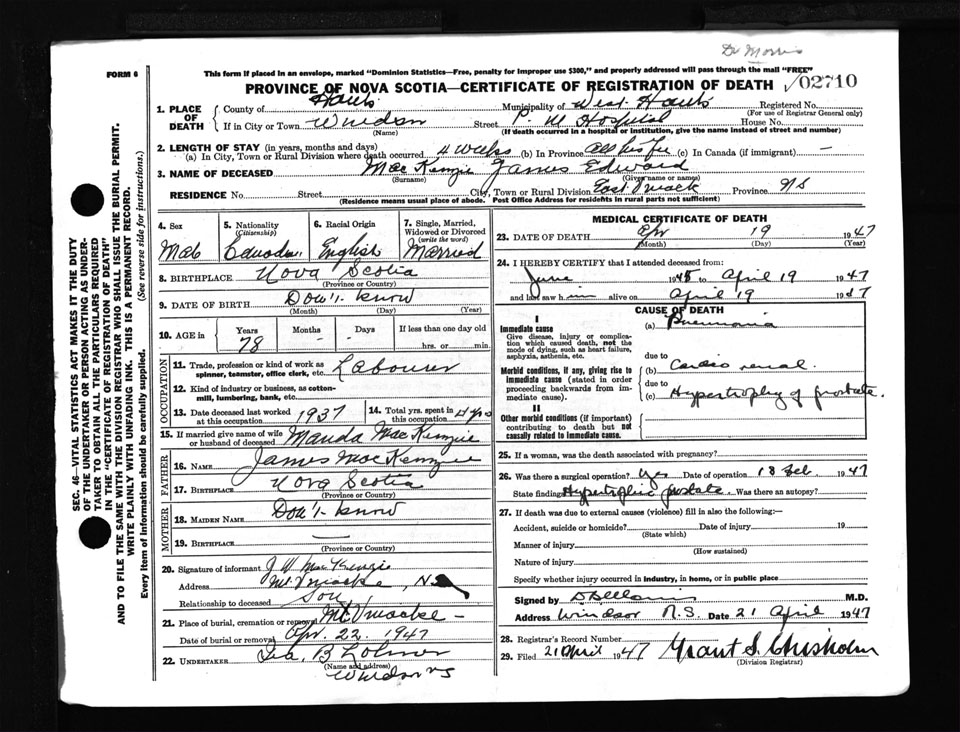 Dr Morris
FORM 6
This form if placed in an envelope, marked "Dominion Statistics—Free, penalty for improper use $300," and properly addressed will pass through the mail "FREE"
PROVINCE OF NOVA SCOTIA—CERTIFICATE OF REGISTRATION OF DEATH
02710
1. PLACE OF DEATH
County of Hants Municipality of West Hants Registered No.
(For use of Registrar General only)
If in City or Town Windsor Street P. M Hospital House No.
(Name) (If death occurred in a hospital or institution, give the name instead of street and number)
2. LENGTH OF STAY (in years, months and days)
(a) In City, Town or Rural Division where death occurred 4 weeks (b) In Province All his life (c) In Canada (if immigrant) —
3. NAME OF DECEASED MacKenzie James Edward
(Surname) (Given name or names)
RESIDENCE No. Street City, Town or Rural Division East Uniacke Province NS
(Residence means usual place of abode. Post Office Address for residents in rural parts not sufficient)
SEC. 46—VITAL STATISTICS ACT MAKES IT THE DUTY
OF THE UNDERTAKER OR PERSON ACTING AS UNDER-
TAKER TO OBTAIN ALL THE PARTICULARS REQUIRED
IN THE "CERTIFICATE OF REGISTRATION OF DEATH"
AND TO FILE THE SAME WITH THE DIVISION REGISTRAR WHO SHALL ISSUE THE BURIAL PERMIT.
WRITE PLAINLY WITH UNFADING INK. THIS IS A PERMANENT RECORD.
Every item of information should be carefully supplied. (See reverse side for instructions.)
4. Sex
Male
5. Nationality
(Citizenship)
Canadian
6. Racial Origin
English
7. Single, Married,
Widowed or Divorced
(write the word)
Married
8. BIRTHPLACE Nova Scotia
(Province or Country)
9. DATE OF BIRTH Don't know
(Month) (Day) (Year)
10. AGE in Years Months Days If less than one day old
78 - - hrs. or min.
OCCUPATION
11. Trade, profession or kind of work as
spinner, teamster, office clerk, etc. Labourer
12. Kind of industry or business, as cotton-
mill, lumbering, bank, etc.
13. Date deceased last worked
at this occupation 1937
14. Total yrs. spent in
this occupation
15. If married give name of wife
or husband of deceased Manda MacKenzie
FATHER
16. NAME James MacKenzie
17. BIRTHPLACE Nova Scotia
(Province or Country)
MOTHER
18. MAIDEN NAME Don't know
19. BIRTHPLACE —
(Province or Country)
20. Signature of informant J W MacKenzie
Address Mt Uniacke, NS
Relationship to deceased Son
21. Place of burial, cremation or removal Mt. Uniacke
Date of burial or removal Apr. 22. 1947
22. UNDERTAKER
(Name and address)
Windsor NS
MEDICAL CERTIFICATE OF DEATH
23. DATE OF DEATH Apr 19 1947
(Month) (Day) (Year)
24. I HEREBY CERTIFY that I attended deceased from:
June 1945 to April 19 1947
and last saw him alive on April 19 1947
CAUSE OF DEATH
I
Immediate cause
Give disease, injury or complica-
tion which caused death, not the
mode of dying, such as heart failure,
asphyxia, asthenia, etc.
(a) Pneumonia
due to
Morbid conditions, if any, giving rise to
immediate cause (stated in order
proceeding backwards from im-
mediate cause).
(b) Cardio renal.
due to
(c) Hypertrophy of prostate.
II
Other morbid conditions (if important)
contributing to death but not
causally related to immediate cause.
25. If a woman, was the death associated with pregnancy?
26. Was there a surgical operation? Yes Date of operation 18 Feb 1947
State findings Hypertrophic prostate. Was there an autopsy?
27. If death was due to external causes (violence) fill in also the following:—
Accident, suicide or homicide? Date of injury 19
(State which)
Manner of injury
(How sustained)
Nature of injury
Specify whether injury occurred in industry, in home, or in public place
Signed by M.D.
Address Windsor N.S. Date 21 April 1947
28. Registrar's Record Number
29. Filed 21 April 1947 Grant S. Chisholm
(Division Registrar)